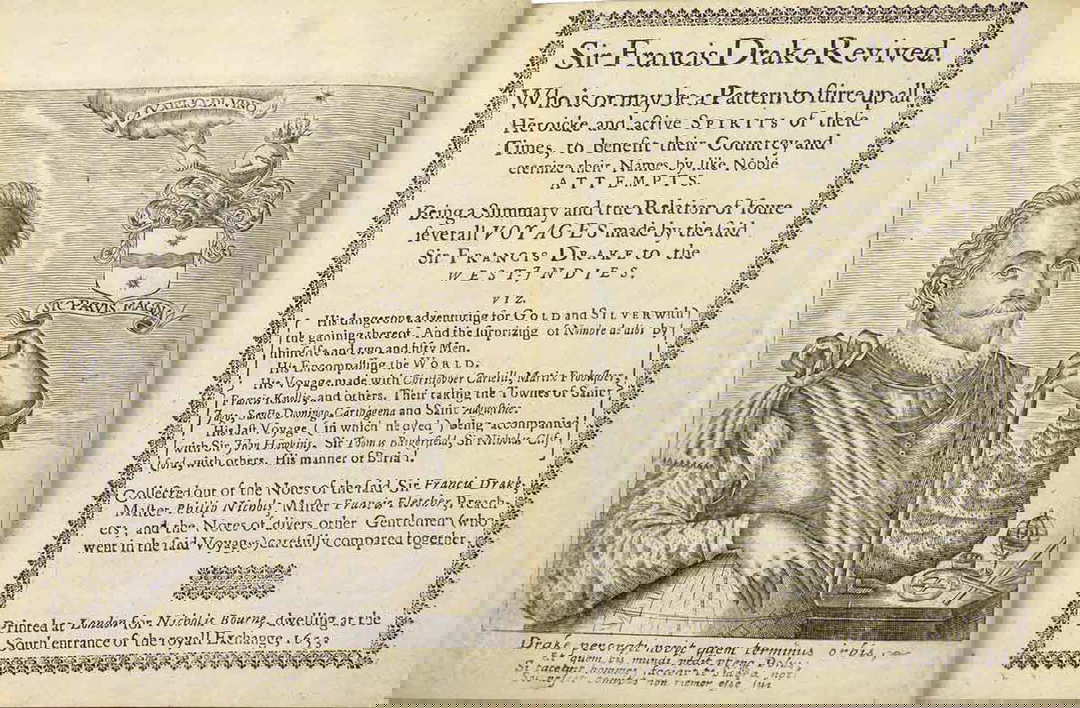 AUXILIO DIVINO
SIC PARVIS MAGNA
Sir Francis Drake Revived.
Who is or may be a Pattern to stirre up all
Heroicke and active SPIRITS of these
Times, to benefit their Countrey and
eternize their Names by like Noble
ATTEMPTS.
Being a Summary and true Relation of foure
severall VOYAGES made by the said
Sir FRANCIS DRAKE to the
WEST-INDIES.
VIZ.
His dangerous adventuring for GOLD and SILVER with
the gaining thereof. And the surprizing of Nombre de dios by
himself and two and fifty Men.
His Encompassing the WORLD.
His Voyage made with Christopher Carleill, Martin Frobusher,
Francis Knollis, and others. Their taking the Townes of Saint
Jago, Sancto Domingo, Carthagena and Saint Augustine.
His last Voyage (in which he dyed) being accompanied
with Sir John Hawkins, Sir Thomas Baskerfield, Sir Nicholas Clif-
ford, with others. His manner of Buriall.
Collected out of the Notes of the said Sir Francis Drake,
Master Philip Nichols, Master Francis Fletcher, Preach-
ers; and the Notes of divers other Gentlemen (who
went in the said Voyages) carefully compared together.
Printed at London for Nicholas Bourne, dwelling at the
South entrance of the royall Exchange, 1653
Drake novit quem terminus orbis,
quem mundi Polus;
Si taceant homines nota
non memor esse sui